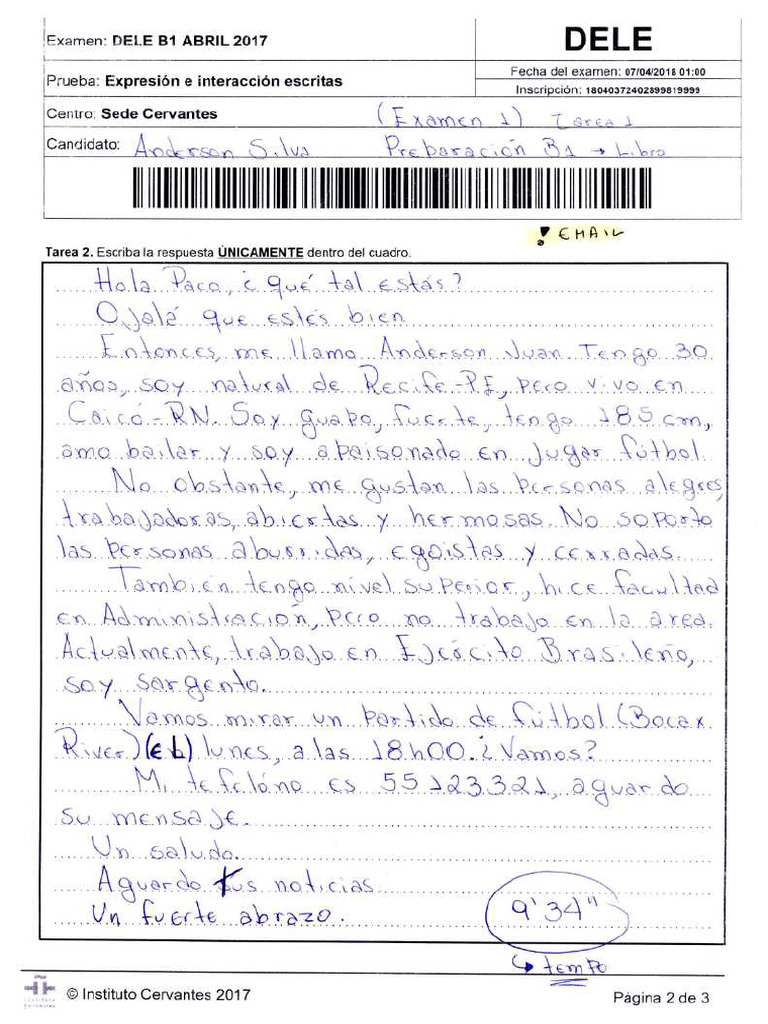 Examen: DELE B1 ABRIL 2017
DELE
Prueba: Expresión e interacción escritas
Fecha del examen: 07/04/2018 01:00
Inscripción: 18040372402899819999
Centro: Sede Cervantes
(Examen 1) Tarea 1
Candidato: Anderson Silva
Preparación B1 → Libro
! EMAIL
Tarea 2. Escriba la respuesta ÚNICAMENTE dentro del cuadro.
Hola Paco, ¿qué tal estás?
Ojalá que estés bien
Entonces, me llamo Anderson Juan Tengo 30
años, soy natural de Recife-PE, pero vivo en
Caicó-RN. Soy guapo, fuerte, tengo 185 cm,
amo bailar y soy apaisonado en jugar fútbol.
No obstante, me gustan las personas alegres,
trabajadoras, abiertas y hermosas. No soporto
las personas aburridas, egoistas y cerradas.
También tengo nível superior, hice facultad
en Administración, pero no trabajo en la area.
Actualmente, trabajo en Ejército Brasileño,
soy sargento.
Vamos mirar un partido de fútbol (Bocax
River) (el) lunes, a las 18h00. ¿Vamos?
Mi telefóno es 55 123.321, aguardo
su mensaje.
Un saludo.
Aguardo tus noticias
Un fuerte abrazo.
9'34"
↳ tempo
Instituto
Cervantes
© Instituto Cervantes 2017
Página 2 de 3